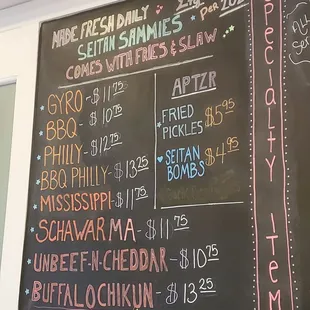 MADE FRESH DAILY
SEITAN SAMMIES
COMES WITH FRIES & SLAW
GYRO - $11.75
BBQ - $10.75
PHILLY - $12.75
BBQ PHILLY - $13.25
MISSISSIPPI - $11.75
SCHAWARMA - $11.75
UNBEEF-N-CHEDDAR - $10.75
BUFFALO CHIKUN - $13.25
APTZR
FRIED PICKLES $5.95
SEITAN BOMBS $4.95
Specialty Item